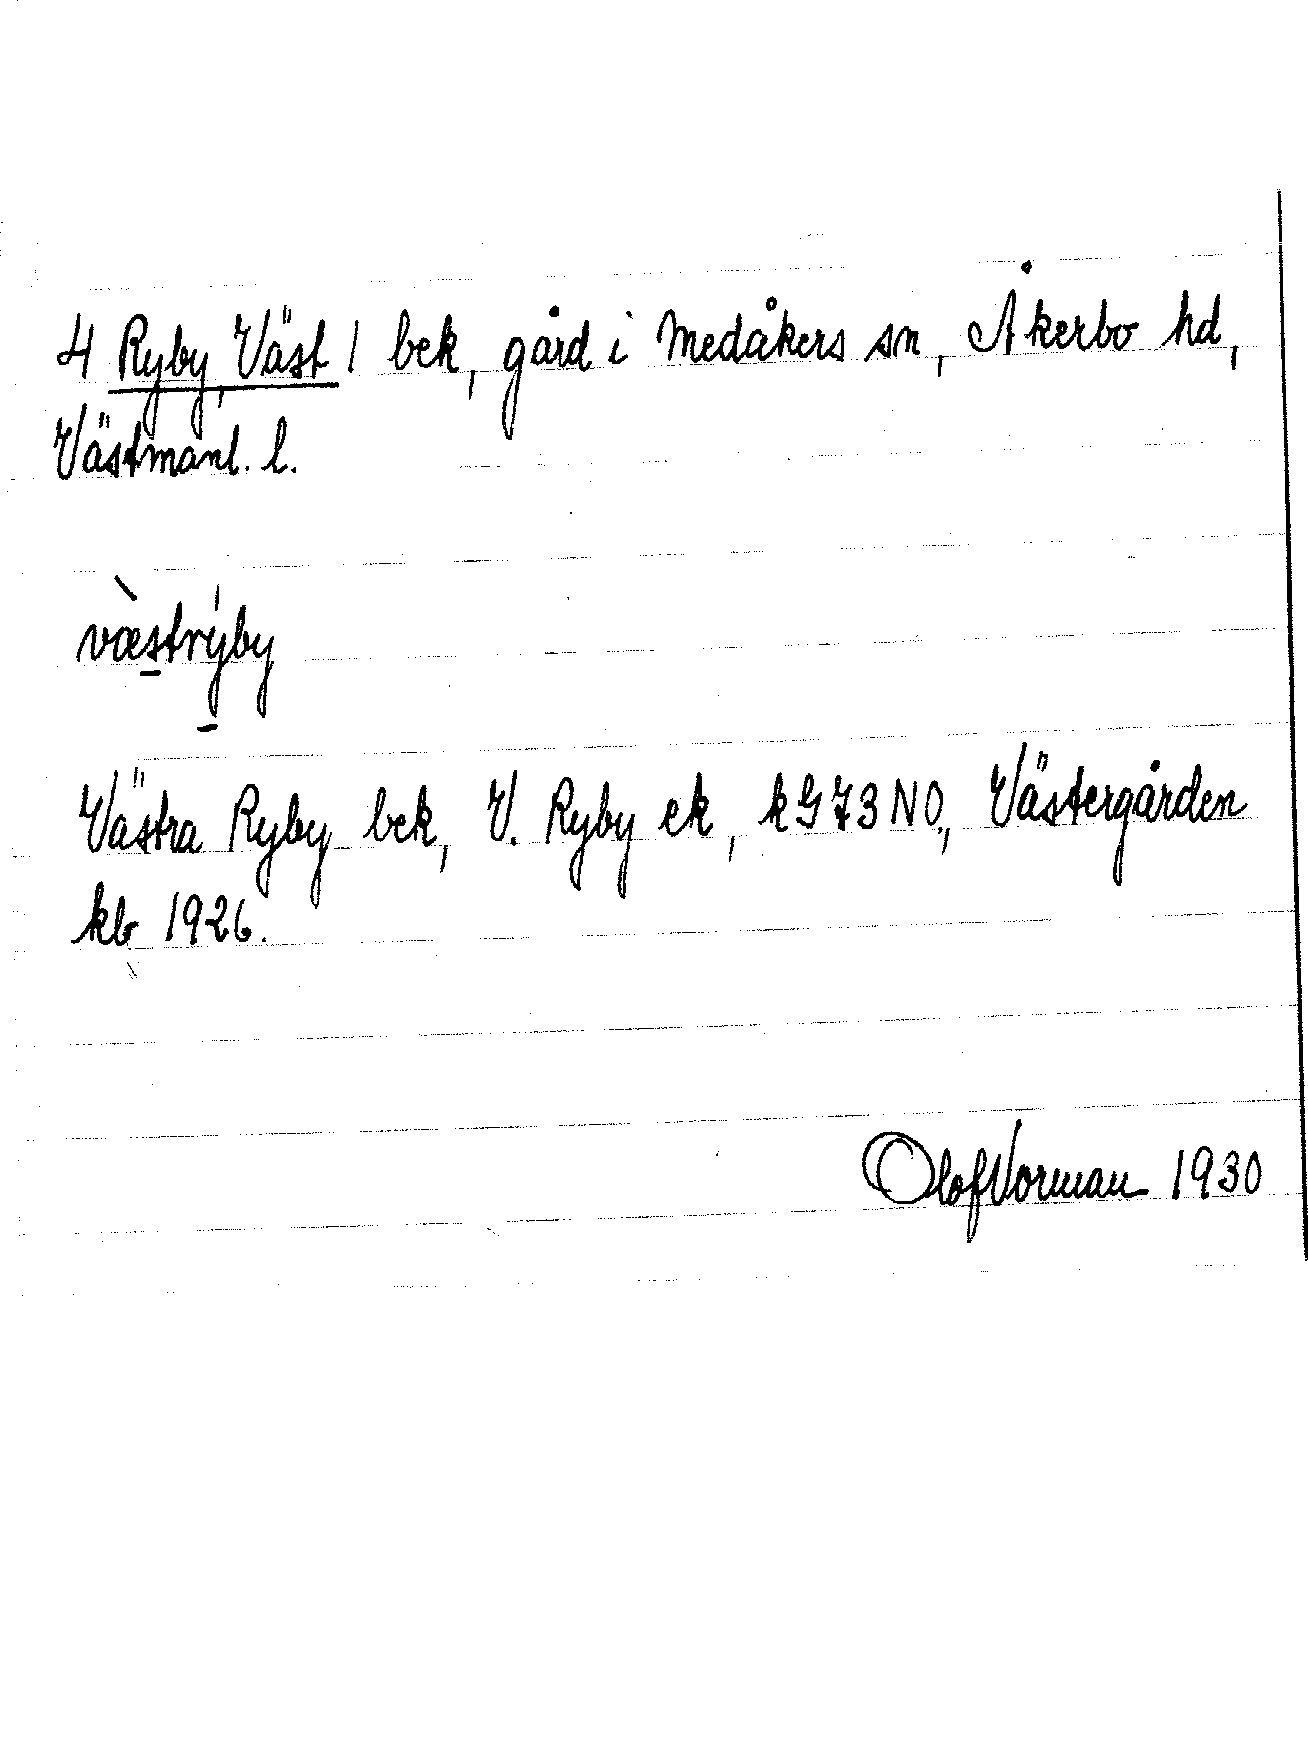 4 Ryby, Väst / bek, gård i Medåkers sn, Åkerbo hd,
Västmanl. l.
væ̀strýby
Västra Ryby bek, V. Ryby ek, kG73NO, Västergården
kb 1926.
Olof Norman 1930